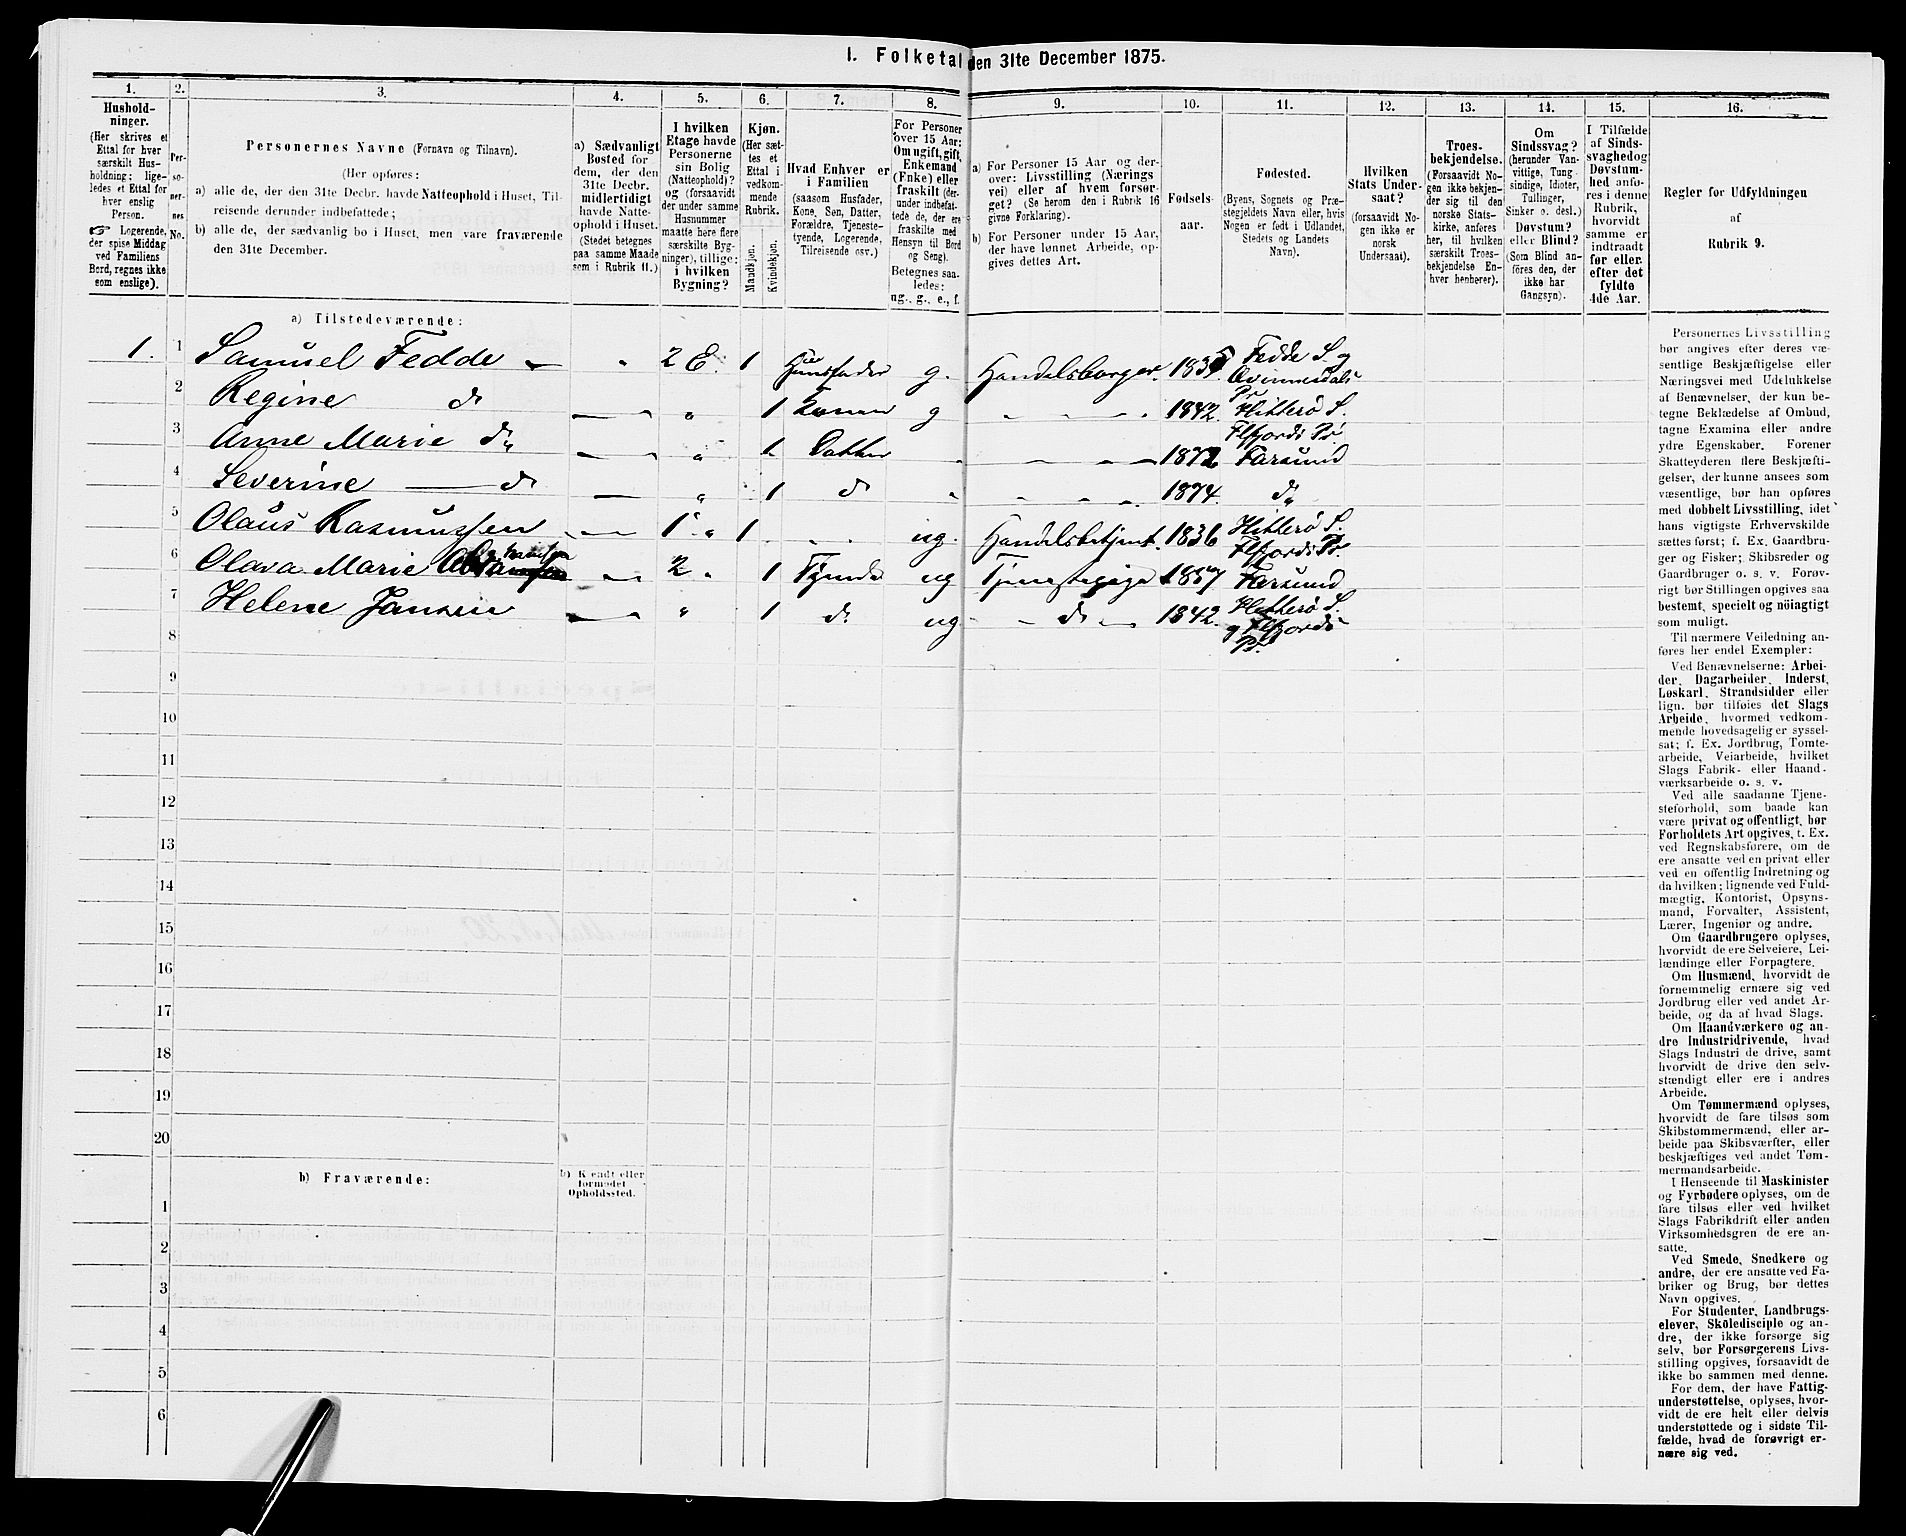 I. Folketal den 31te December 1875.
1. 2. 3. 4. 5. 6. 7. 8. 9. 10. 11. 12. 13. 14. 15. 16.
Hushold-
ninger.
(Her skrives et
Ettal for hver
særskilt Hus-
holdning; lige-
ledes et Ettal for
hver enslig
Person.
☞ Logerende,
der spise Middag
ved Familiens
Bord, regnes ikke
som enslige).
Per-
so-
ner-
nes
No.
Personernes Navne (Fornavn og Tilnavn).
(Her opføres:
a) alle de, der den 31te Decbr. havde Natteophold i Huset, Til-
reisende derunder indbefattede;
b) alle de, der sædvanlig bo i Huset, men vare fraværende
den 31te December.
a) Sædvanligt
Bosted for
dem, der den
31te Decbr.
midlertidigt
havde Natte-
ophold i Huset.
(Stedet betegnes
paa samme Maade
som i Rubrik 11.)
I hvilken
Etage havde
Personerne
sin Bolig
(Natteophold)?
og (forsaavidt
der under samme
Husnummer
maatte høre flere
særskilte Byg-
ninger), tillige:
i hvilken
Bygning?
Kjøn.
(Her sæt-
tes et
Ettal i
vedkom-
mende
Rubrik.
Mandkjøn.
Kvindekjøn.
Hvad Enhver er
i Familien
(saasom Husfader,
Kone, Søn, Datter,
Forældre, Tjeneste-
tyende, Logerende,
Tilreisende osv.)
For Personer
over 15 Aar:
Om ugift, gift,
Enkemand
(Enke) eller
fraskilt (der-
under indbefat-
tede de, der ere
fraskilte med
Hensyn til Bord
og Seng).
Betegnes saa-
ledes:
ug., g., e., f.
a) For Personer 15 Aar og der-
over: Livsstilling (Nærings
vei) eller af hvem forsør-
get? (Se herom den i Rubrik 16
givne Forklaring).
b) For Personer under 15 Aar,
der have lønnet Arbeide, op-
gives dettes Art.
Fødsels-
aar.
Fødested.
(Byens, Sognets og Præ-
stegjeldets Navn eller, hvis
Nogen er født i Udlandet,
Stedets og Landets
Navn).
Hvilken
Stats Under-
saat?
(forsaavidt No-
gen ikke er
norsk
Undersaat).
Troes-
bekjendelse.
(Forsaavidt No-
gen ikke bekjen-
der sig til den
norske Stats-
kirke, anføres
her, til hvilken
særskilt Troes-
bekjendelse En-
hver henhører).
Om
Sindssvag?
(herunder Van-
vittige, Tung-
sindige, Idioter,
Tullinger,
Sinker o. desl.)
Døvstum?
eller Blind?
(Som Blind an-
føres den, der
ikke har
Gangsyn).
I Tilfælde
af Sinds-
svaghed og
Døvstum-
hed anfø-
res i denne
Rubrik,
hvorvidt
samme er
indtraadt
før eller
efter det
fyldte
4de Aar.
Regler for Udfyldningen
af
Rubrik 9.
a) Tilstedeværende:
1. 1 Samuel Fedde 2 E. 1 Huusfader g. Handelsborger. 1835 Fedde S. og Qvinnesdals Pr
2 Regine do 1 Konen g 1842. Hitterø S. Flfjords Pr.
3 Anne Marie do 1 Datter 1872 Farsund
4 Severine do 1 do 1874. do
5 Olaus Rasmussen 1 1 ug. Handelsbetjent. 1836 Hitterø S. Flfjords Pr.
6 Olava Marie 2 1 Tyende ug Tjenestepige 1857 Farsund
7 Helene Jansen 1 do ug. do 1842. Hitterø S. og Flfjords Pr.
8
9
10
11
12
13
14
15
16
17
18
19
20
b) Fraværende:
b) Kjendt eller
formodet
Opholdssted.
1
2
3
4
5
6
Personernes Livsstilling
bør angives efter deres væ-
sentlige Beskjæftigelse eller
Næringsvei med Udelukkelse
af Benævnelser, der kun be-
tegne Beklædelse af Ombud,
tagne Examina eller andre
ydre Egenskaber. Forener
Skatteyderen flere Beskjæfti-
gelser, der kunne ansees som
væsentlige, bør han opføres
med dobbelt Livsstilling, idet
hans vigtigste Erhvervskilde
sættes først; f. Ex. Gaardbru-
ger og Fisker; Skibsreder og
Gaardbruger o. s. v. Forøv-
rigt bør Stillingen opgives saa
bestemt, specielt og nöiagtigt
som muligt.
Til nærmere Veiledning an-
føres her endel Exempler:
Ved Benævnelserne: Arbei-
der, Dagarbeider, Inderst,
Løskarl, Strandsidder eller
lign. bør tilføies det Slags
Arbeide, hvormed vedkom-
mende hovedsagelig er syssel-
sat; f. Ex. Jordbrug, Tomte-
arbeide, Veiarbeide, hvilket
Slags Fabrik- eller Haand-
værksarbeide o. s. v.
Ved alle saadanne Tjene-
steforhold, som baade kan
være privat og offentligt, bør
Forholdets Art opgives, t. Ex.
ved Regnskabsførere, om de
ere ansatte ved en privat eller
ved en offentlig Indretning og
da hvilken; lignende ved Fuld-
mægtig, Kontorist, Opsyns-
mand, Forvalter, Assistent,
Lærer, Ingeniør og andre.
Om Gaardbrugere oplyses,
hvorvidt de ere Selveiere, Lei-
lændinge eller Forpagtere.
Om Husmænd, hvorvidt de
fornemmelig ernære sig ved
Jordbrug eller ved andet Ar-
beide, og da af hvad Slags.
Om Haandværkere og an-
dre Industridrivende, hvad
Slags Industri de drive, samt
hvorvidt de drive den selv-
stændigt eller ere i andres
Arbeide.
Om Tømmermænd oplyses,
hvorvidt de fare tilsøs som
Skibstømmermænd, eller ar-
beide paa Skibsværfter, eller
beskjæftiges ved andet Tøm-
mermandsarbeide.
I Henseende til Maskinister
og Fyrbødere oplyses, om de
fare tilsøs eller ved hvilket
Slags Fabrikdrift eller anden
Virksomhedsgren de ere an-
satte.
Ved Smede, Snedkere og
andre, der ere ansatte ved Fa-
briker og Brug, bør dettes
Navn opgives.
For Studenter, Landbrugs-
elever, Skoledisciple og an-
dre, der ikke forsørge sig
selv, bør Forsørgerens Livs-
stilling opgives, forsaavidt de
ikke bo sammen med denne.
For dem, der have Fattig-
understøttelse, oplyses, hvor-
vidt de ere helt eller delvis
understøttede og i sidste Til-
fælde, hvad de forøvrigt er-
nære sig ved.